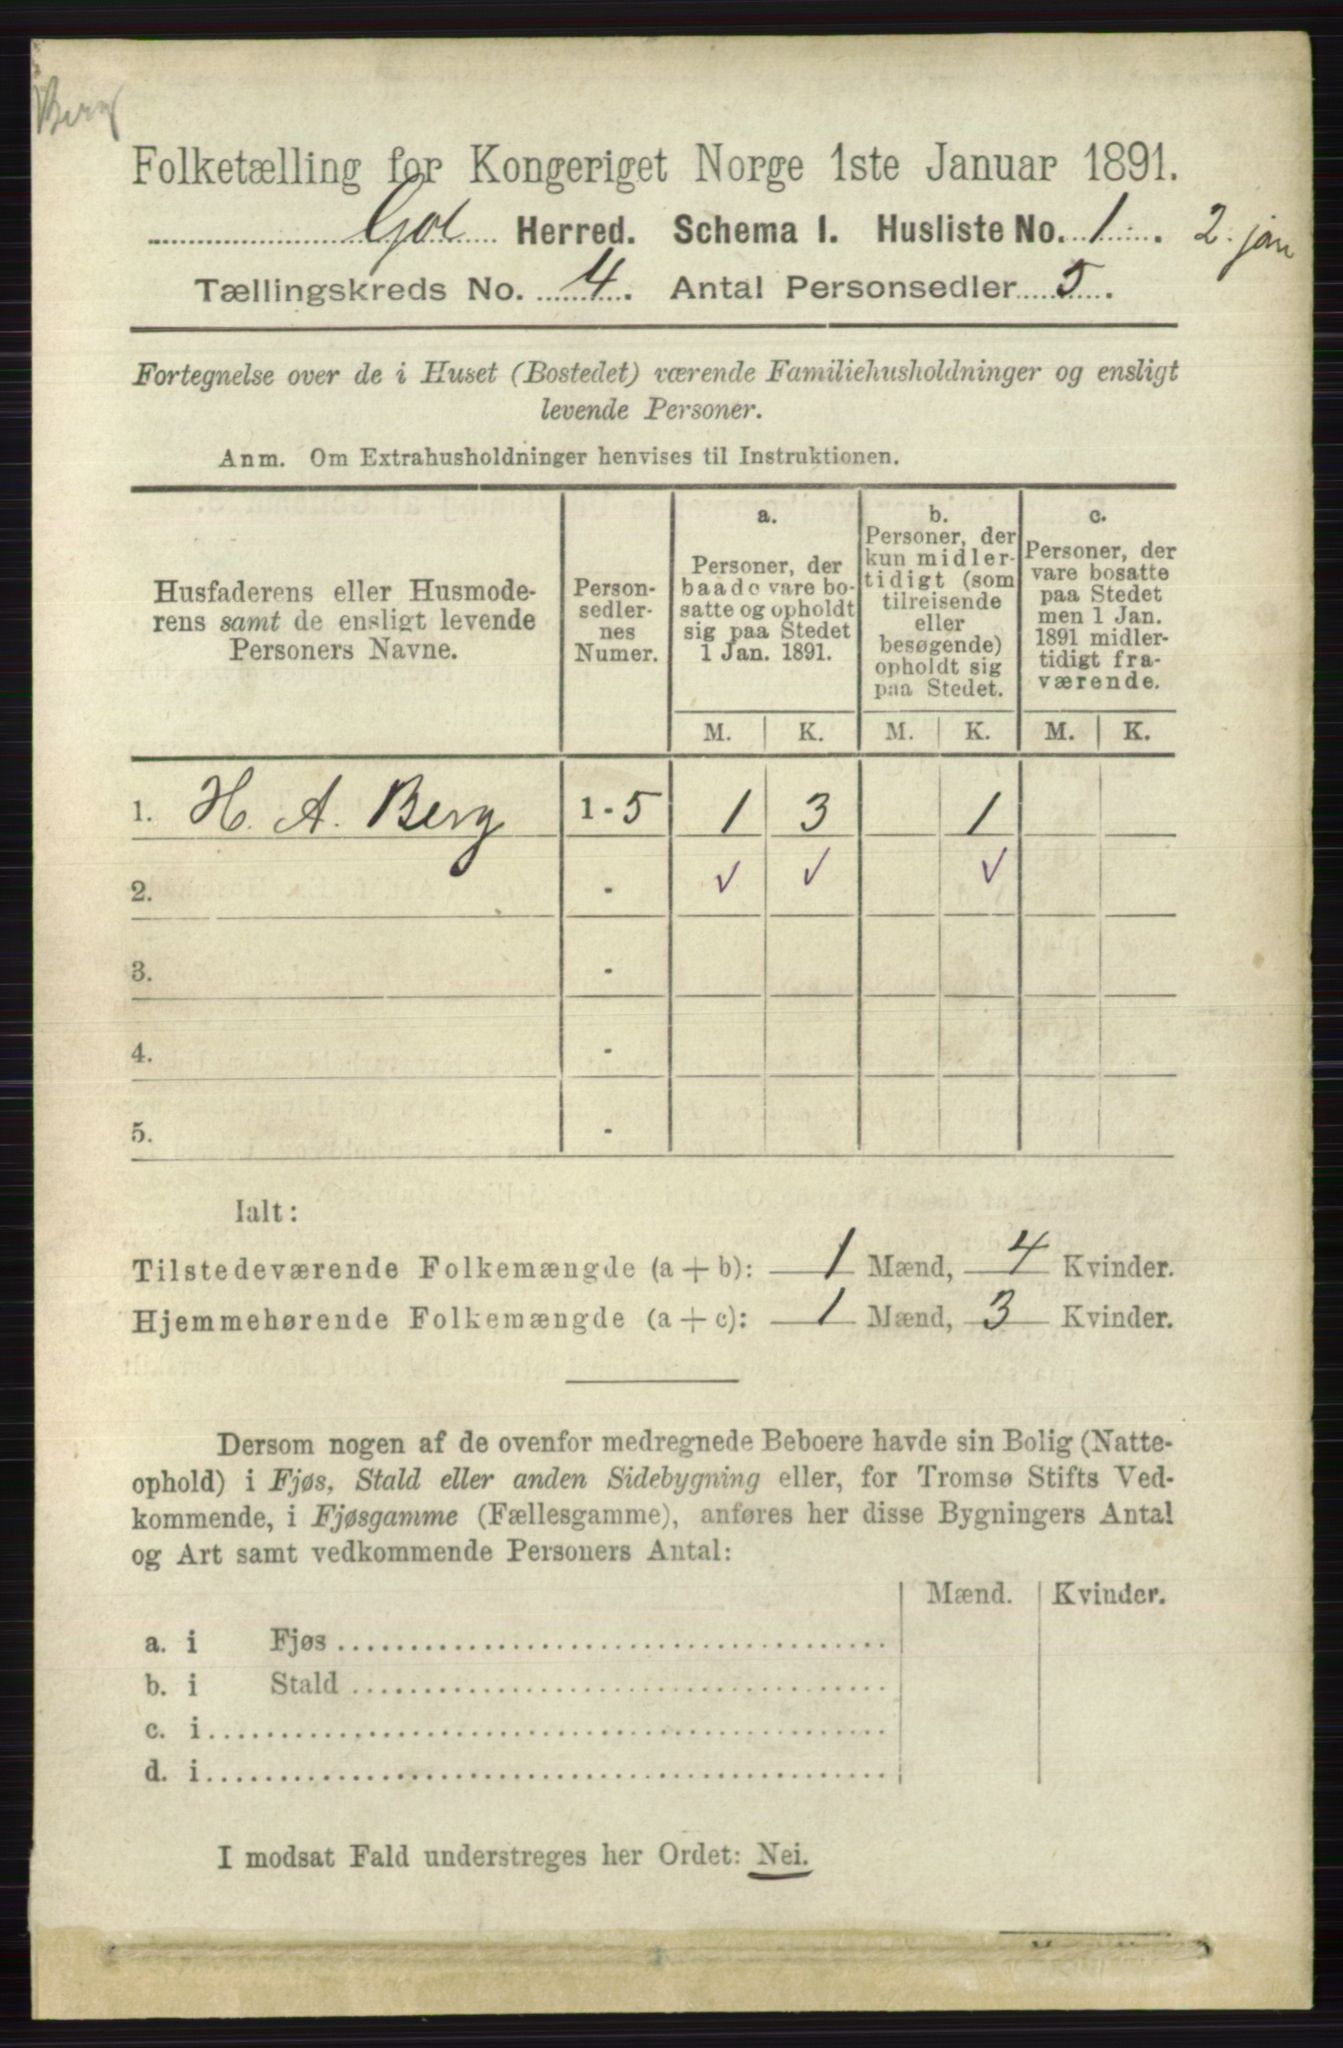 Berg
Folketælling for Kongeriget Norge 1ste Januar 1891.
Gol Herred. Schema I. Husliste No. 1. 2. jan
Tællingskreds No. 4. Antal Personsedler 5.
Fortegnelse over de i Huset (Bostedet) værende Familiehusholdninger og ensligt
levende Personer.
Anm. Om Extrahusholdninger henvises til Instruktionen.
Husfaderens eller Husmode-
rens samt de ensligt levende
Personers Navne.
Person-
sedler-
nes
Numer.
a.
Personer, der
baade vare bo-
satte og opholdt
sig paa Stedet
1 Jan. 1891.
b.
Personer, der
kun midler-
tidigt (som
tilreisende
eller
besøgende)
opholdt sig
paa Stedet.
c.
Personer, der
vare bosatte
paa Stedet
men 1 Jan.
1891 midler-
tidigt fra-
værende.
M. K. M. K. M. K.
1. H. A. Berg 1-5 1 3 1
2. - ✓ ✓ ✓
3. -
4. -
5. -
Ialt:
Tilstedeværende Folkemængde (a + b): 1 Mænd, 4 Kvinder.
Hjemmehørende Folkemængde (a + c): 1 Mænd, 3 Kvinder.
Dersom nogen af de ovenfor medregnede Beboere havde sin Bolig (Natte-
ophold) i Fjøs, Stald eller anden Sidebygning eller, for Tromsø Stifts Ved-
kommende, i Fjøsgamme (Fællesgamme), anføres her disse Bygningers Antal
og Art samt vedkommende Personers Antal:
Mænd. Kvinder.
a. i Fjøs
b. i Stald
c. i
d. i
I modsat Fald understreges her Ordet: Nei.